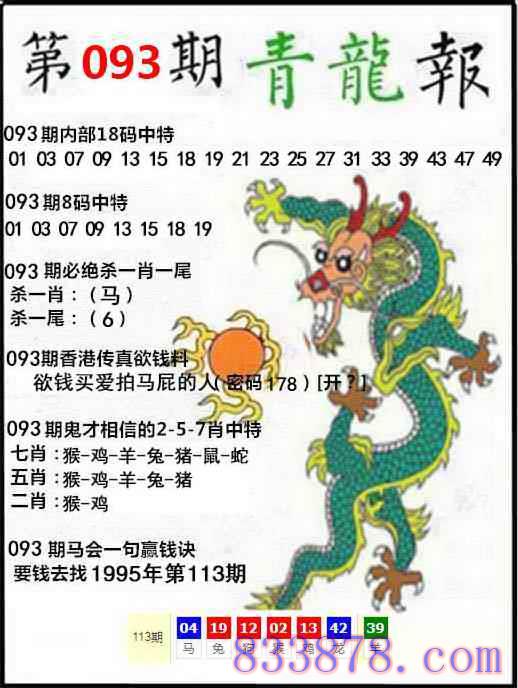 第093期 青龍報
093期内部18码中特
01 03 07 09 13 15 18 19 21 23 25 27 31 33 39 43 47 49
093期8码中特
01 03 07 09 13 15 18 19
093期必绝杀一肖一尾
杀一肖：（马）
杀一尾：（6）
093期香港传真欲钱料
欲钱买爱拍马屁的人(密码178)[开？]
093期鬼才相信的2-5-7肖中特
七肖：猴-鸡-羊-兔-猪-鼠-蛇
五肖：猴-鸡-羊-兔-猪
二肖：猴-鸡
093期马会一句赢钱诀
要钱去找1995年第113期
113期 04 19 12 02 13 42 39
马 兔 狗 猴 鸡 龙 羊
833878.com